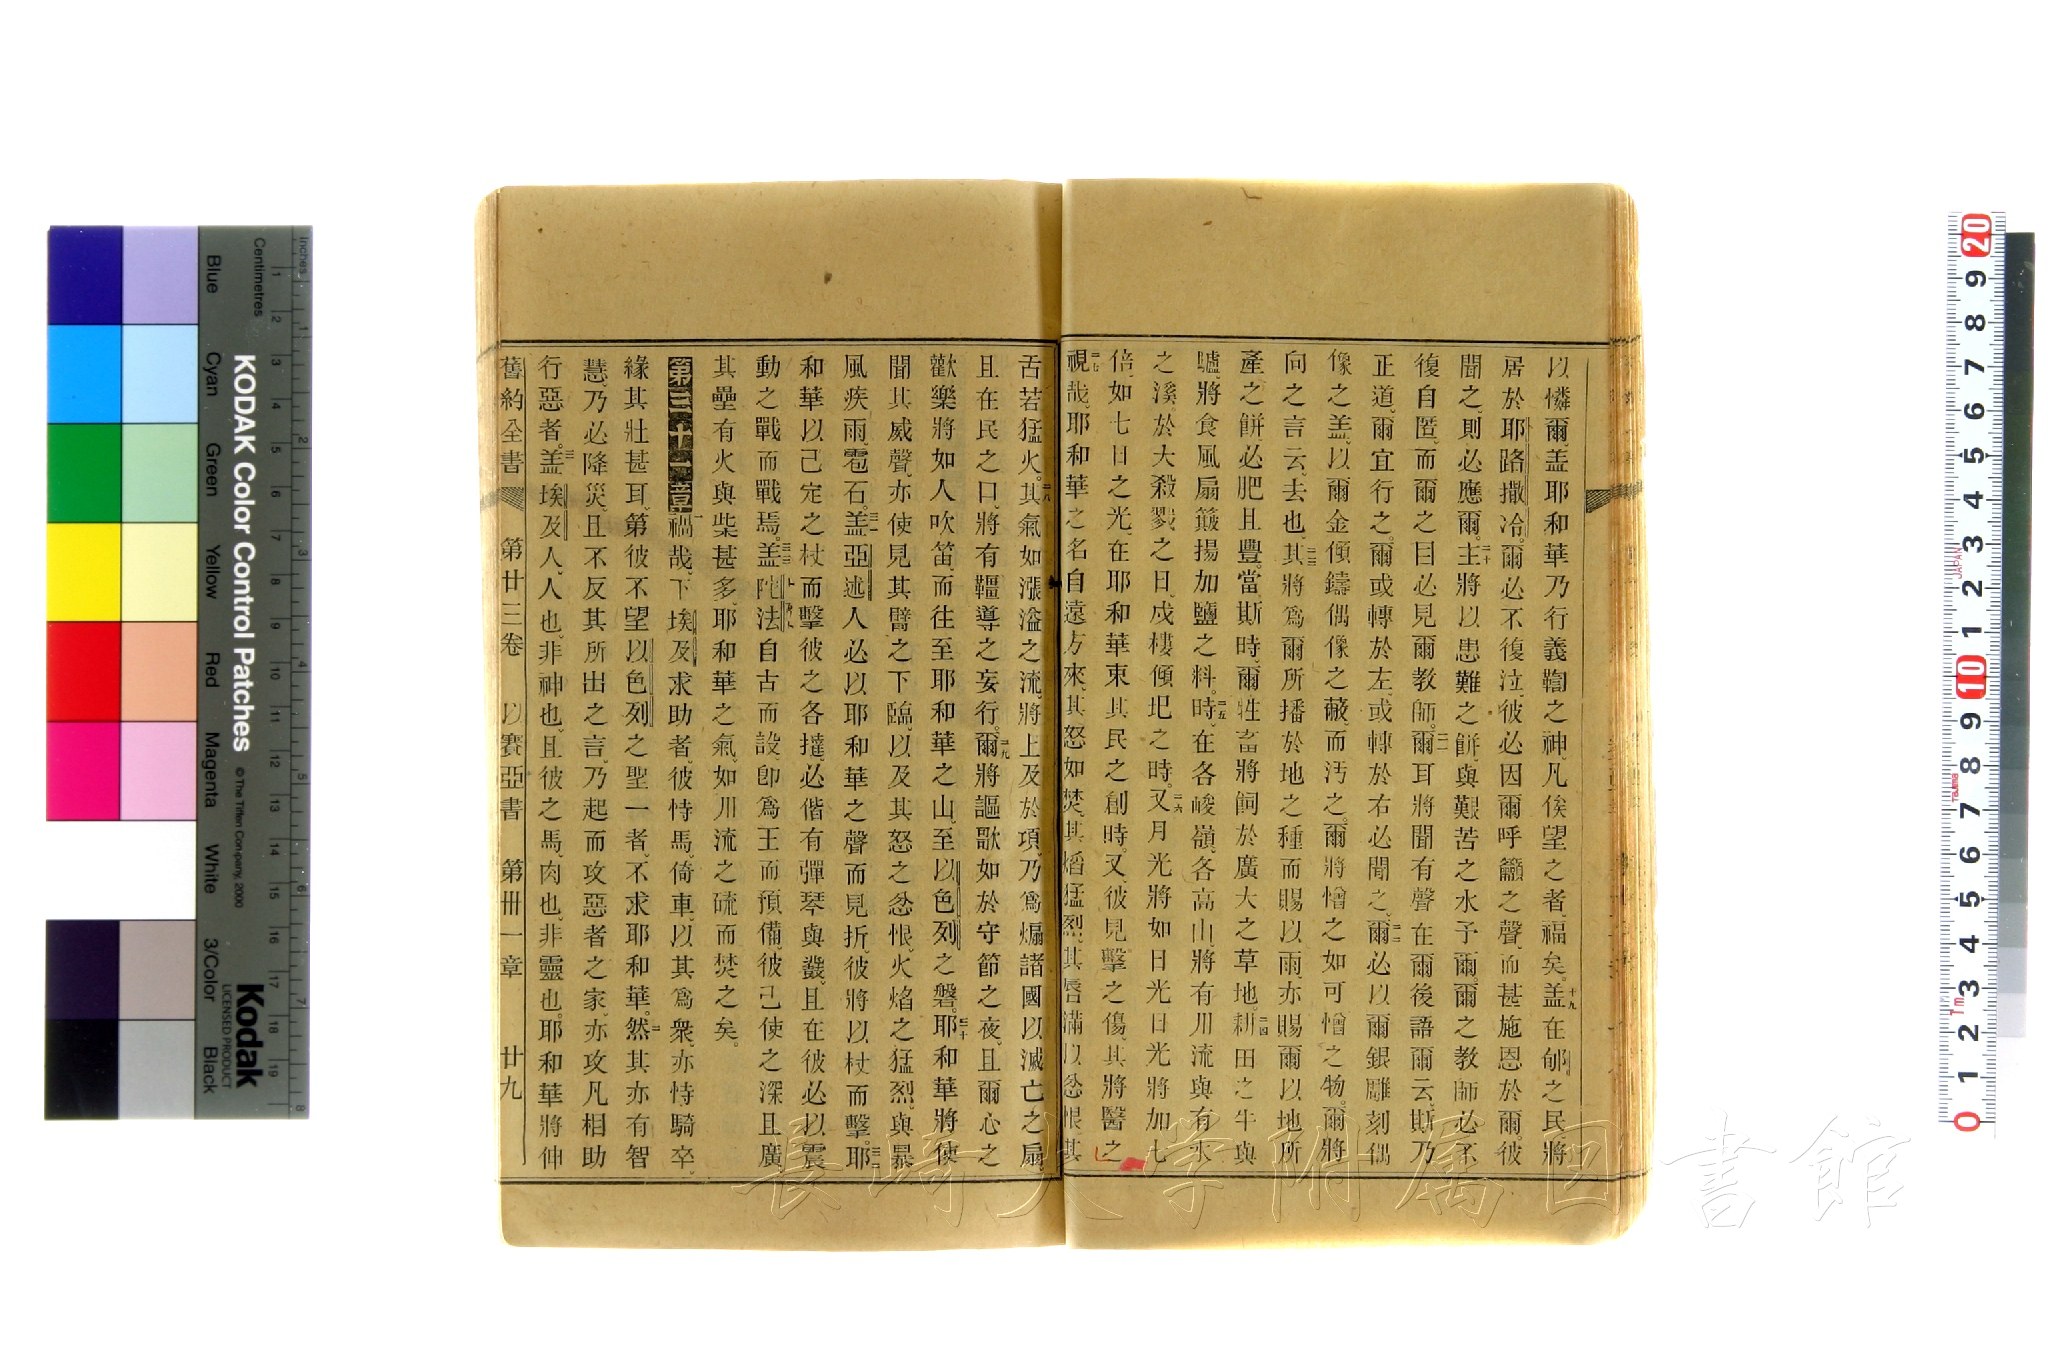 以憐爾蓋耶和華乃行義鞫之神凡俟望之者福矣蓋在郇之民將
居於耶路撒冷爾必不復泣彼必因爾呼籲之聲而甚施恩於爾彼
聞之則必應爾主將以患難之餅與艱苦之水予爾爾之教師必不
復自匿而爾之目必見爾教師爾耳將聞有聲在爾後語爾云斯乃
正道爾宜行之爾或轉於左或轉於右必聞之爾必以爾銀雕刻偶
像之蓋以爾金傾鑄偶像之蔽而汚之爾將憎之如可憎之物爾將
向之言云去也其將爲爾所播於地之種而賜以雨亦賜爾以地所
產之餅必肥且豐當斯時爾牲畜將飼於廣大之草地耕田之牛與
驢將食風扇簸揚加鹽之料時在各峻嶺各高山將有川流與有水
之溪於大殺戮之日戍樓傾圯之時又月光將如日光日光將加七
倍如七日之光在耶和華束其民之創時又彼見擊之傷其將醫之
視哉耶和華之名自遠方來其怒如焚其熖猛烈其唇滿以忿恨其
舌若猛火其氣如漲溢之流將上及於項乃爲煽諸國以滅亡之扇
且在民之口將有韁導之妄行爾將謳歌如於守節之夜且爾心之
歡樂將如人吹笛而往至耶和華之山至以色列之磐耶和華將使
聞其威聲亦使見其臂之下臨以及其怒之忿恨火焰之猛烈與暴
風疾雨雹石蓋亞述人必以耶和華之聲而見折彼將以杖而擊耶
和華以己定之杖而擊彼之各撻必偕有彈琴與鼗且在彼必以震
動之戰而戰焉蓋陀法自古而設卽爲王而預備彼已使之深且廣
其壘有火與柴甚多耶和華之氣如川流之硫而焚之矣
第三十一章禍哉下埃及求助者彼恃馬倚車以其爲衆亦恃騎卒
緣其壯甚耳第彼不望以色列之聖一者不求耶和華然其亦有智
慧乃必降災且不反其所出之言乃起而攻惡者之家亦攻凡相助
行惡者蓋埃及人人也非神也且彼之馬肉也非靈也耶和華將伸
舊約全書 第廿三卷 以賽亞書 第卅一章 廿九
KODAK Color Control Patches
© The Tiffen Company, 2000
Kodak
LICENSED PRODUCT
Inches
Centimetres
Blue
Cyan
Green
Yellow
Red
Magenta
White
3/Color
Black
長崎大学附属図書館